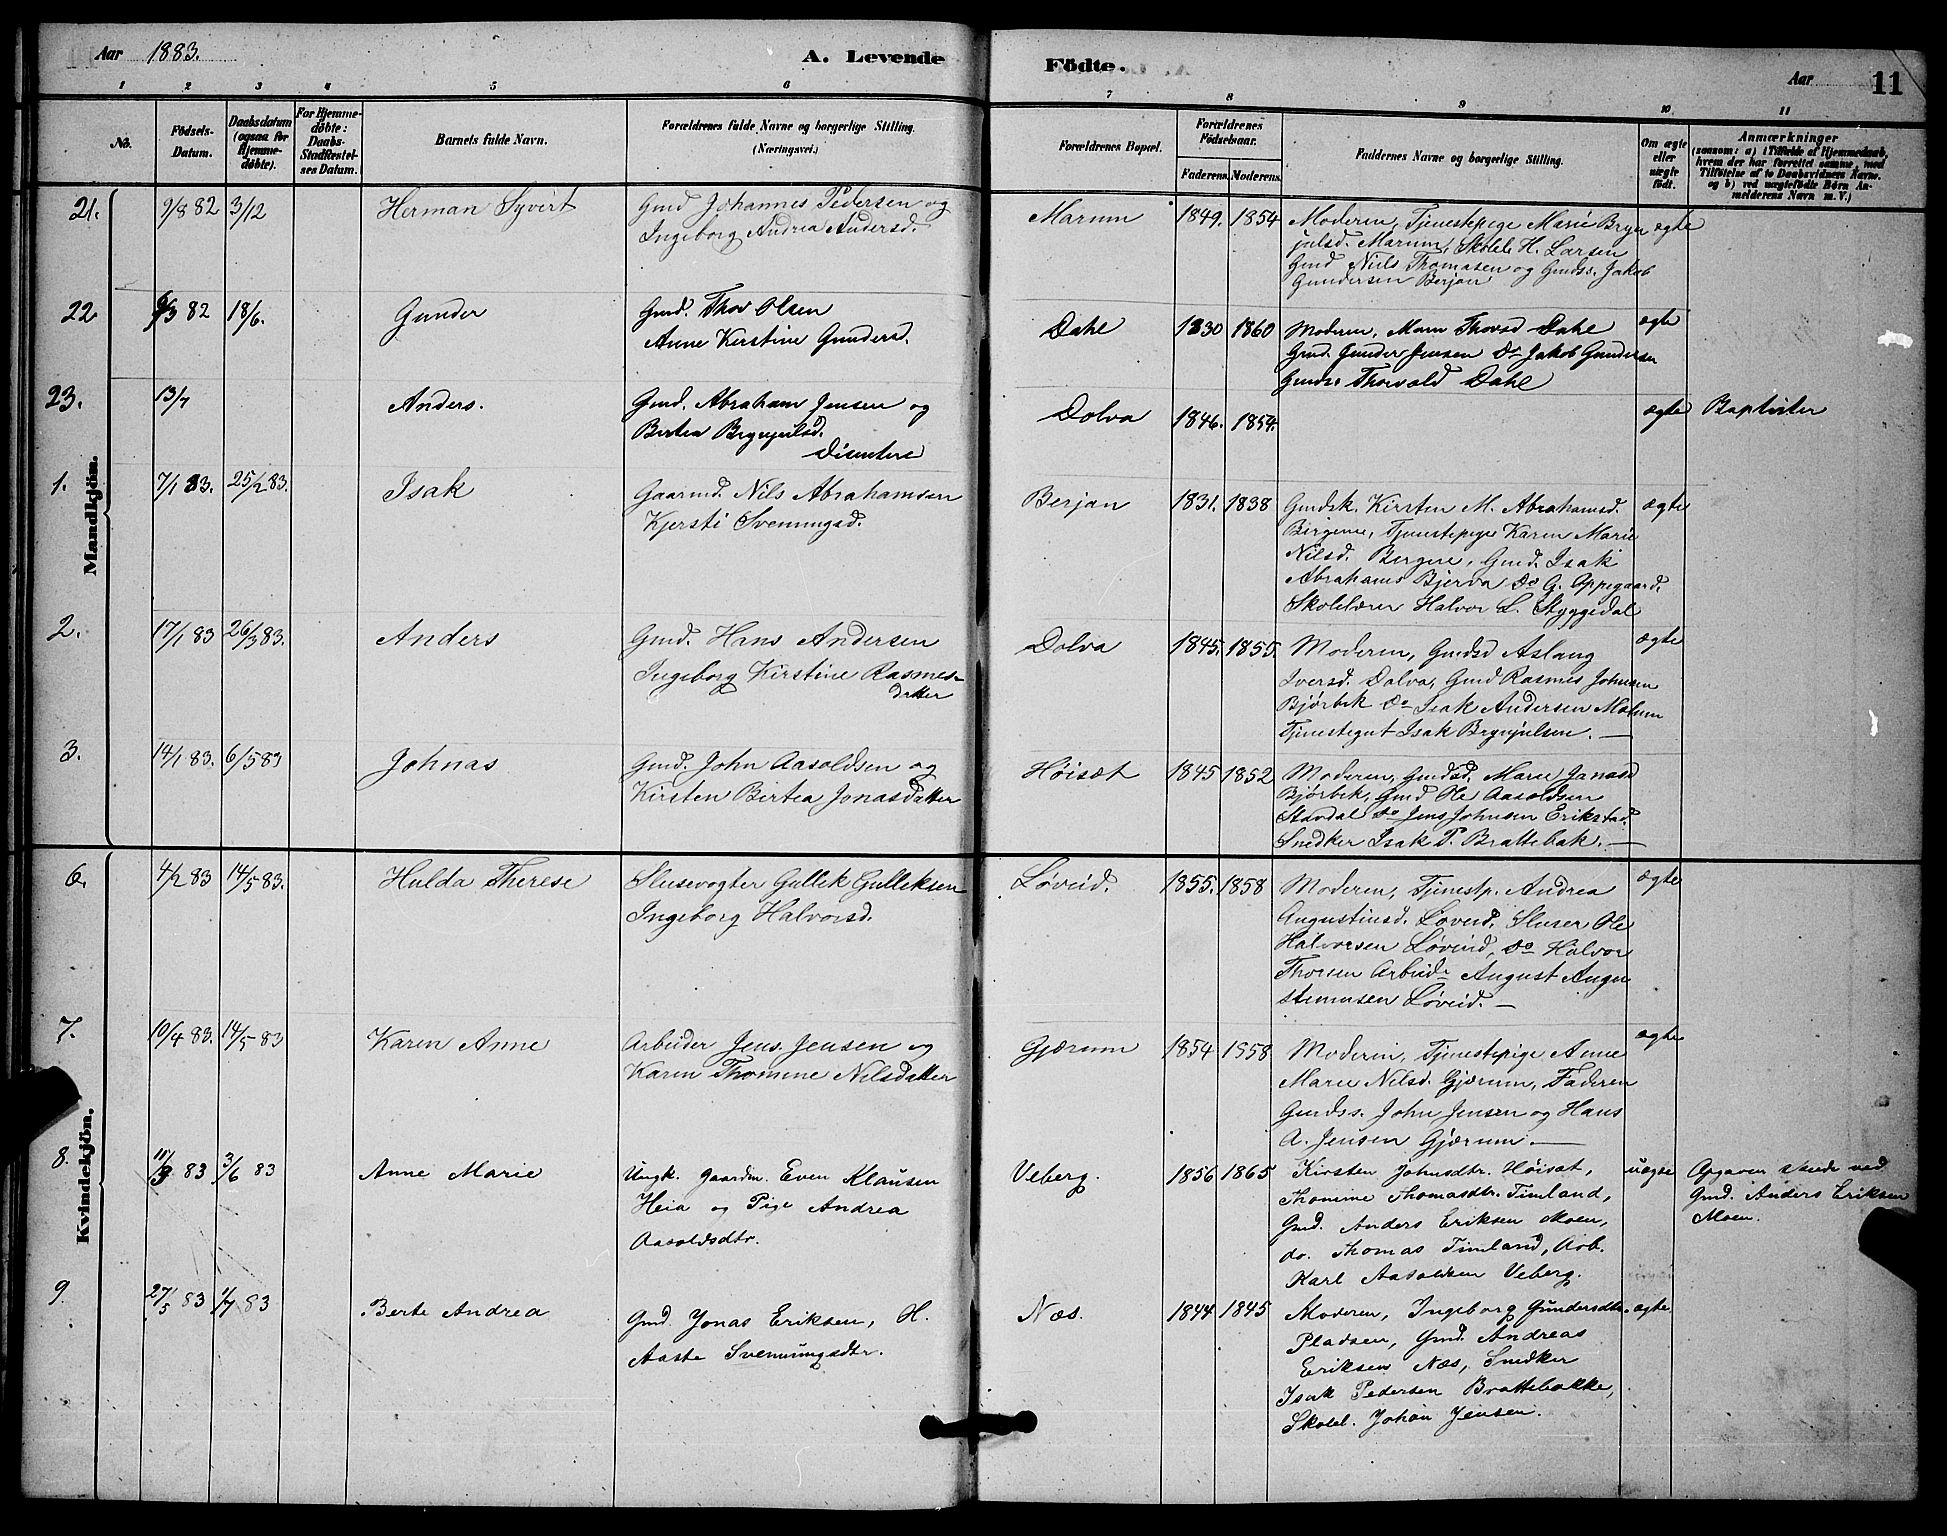 Aar 1883.
A. Levende
Födte.
Aar 11
1 2 3 4 5 6
7 8 9 10 11
No.
Födsels-
Datum.
Daabsdatum
(ogsaa for
Hjemme-
døbte).
For Hjemme-
døbte:
Daabs-
Stadfæstel-
ses Datum.
Barnets fulde Navn.
Forældrenes fulde Navne og borgerlige Stilling.
(Næringsvei.)
Forældrenes Bopæl.
Forældrenes
Födselsaar.
Faderens. Moderens.
Faddernes Navne og borgerlige Stilling.
Om ægte
eller
uægte
født.
Anmærkninger
(saasom: a) i Tilfælde af Hjemmedaab,
hvem der har forrettet samme, med
Tilföielse af to Daabsvidners Navne.
og b) ved uægtefödte Börn An-
melderens Navn m. V.)
Mandkjön.
21. 9/8 82 3/12 Herman Syvert
Gmd Johannes Pedersen og
Ingeborg Andrea Andersd.
Marum 1849. 1854
Moderen, Tjenestepige Marie Bryn
julsd. Marum, Skolel. H. Larsen
Gmd Niels Thomasen og Gmdss. Jakob
Gundersen Berjan
ægte
22. 6/3 82 18/6. Gunder
Gmd. Thov Olsen
Anne Kirstine Gunders.
Dahl 1830 1860
Moderen, Maren Thovsd Dahl
Gmd. Gunder Jensen Do Jakob Gundersen
Gmds. Thorvald Dahl
ægte
23. 13/7 Anders.
Gmd. Abraham Jensen og
Bertea Brynjulsd.
Disentere
Dolva 1846. 1854.
ægte Baptister
1. 7/1 83. 25/2 83. Isak
Gaarmd. Nils Abrahamsen
Kjersti Svenningsd.
Berjan 1831. 1838
Gmdsk. Kirsten M. Abrahamsd.
Birgene, Tjenestepige Karen Marie
Nilsd. Bergene, Gmd. Isak
Abrahams Bjerva Do G. Oppegaard.
Skolelærer Halvor L. Styggedal
ægte
2. 17/1 83 26/3 83. Anders
Gmd. Hans Andersen
Ingeborg Kirstine Rasmes-
datter
Dolva 1845. 1855.
Moderen, Gmdsd Aslaug
Iversd. Dolva, Gmd Rasmus Johnsen
Bjørbek Do Isak Andersen Malum
Tjenestegut Isak Brynjulsen. —
ægte
3. 14/1 83. 6/5 83 Johnas
Gmd. John Aasoldsen og
Kirsten Birtea Jonasdatter
Høisæt 1845 1852
Moderen, Gmdsd. Marie Janasd
Bjørbek, Gmd Ole Aasoldsen
Stavdal Do Jens Johnsen Erikstad.
Snedker Isak P. Brattebak. —
Kvindekjön.
6. 4/2 83 14/5 83. Hulda Therese
Slusevogter Gullik Gulleksen
Ingeborg Halvorsd.
Løveid. 1855. 1858
Moderen, Tjenestp. Andrea
Augustinsd. Løveid, Sluser Ole
Halvorsen Løveid, Do Halvor
Thorsen Arbeidr August Augu
stinusen Løveid. —
ægte
7. 10/4 83. 14/5 83 Karen Anne
Arbeider Jens Jensen og
Karen Thomine Nilsdatter
Gjærum 1854 1858
Moderen, Tjenestepige Anne
Marie Nilsd. Gjærum, Faderen
Gmdss. John Jensen og Hans
A. Jensen Gjærum. —
ægte
8. 11/3 83 3/6 83 Anne Marie
Ungk. gaardm. Even Klausen
Heia og Pige Andrea
Aasoldsdtr.
Veberg. 1856 1865
Kirsten Johnsdtr. Høisæt,
Thomine Thomasdtr. Timland,
Gmd. Anders Eriksen Moen,
do. Thomas Timland, Arb.
Karl Aasoldsen Veberg.
uægte
Opgaven skede ved
Gmd. Anders Eriksen
Moen.
9 27/5 83 1/7 83 Berte Andrea
Gmd. Jonas Eriksen, H.
Aaste Svenningsdtr.
Næs. 1844 1845
Moderen, Ingeborg Gundersdtr.
Pladsen, Gmd. Andreas
Eriksen Næs, Snedker
Isak Pedersen Brattebakke,
Skolel. Johan Jensen.
ægte